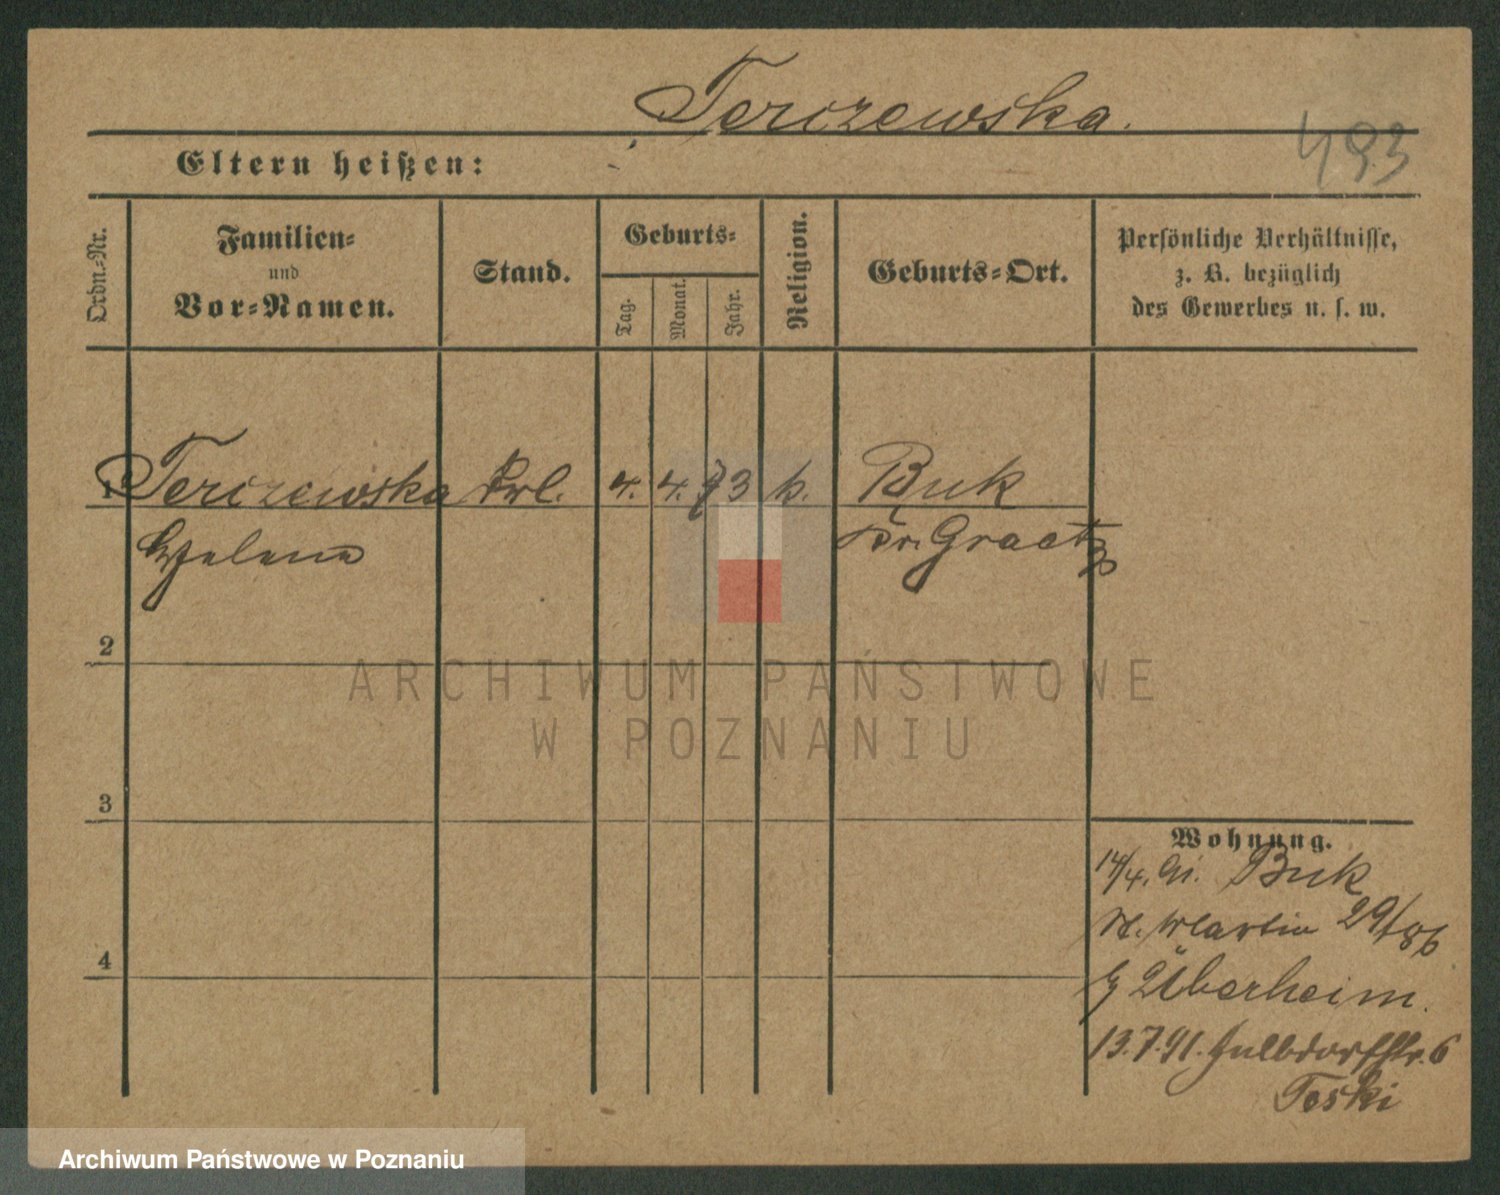 Terczewska.
493
Eltern heißen:
Ordn.-Nr.
Familien-
und
Vor-Namen.
Stand.
Geburts-
Tag.
Monat.
Jahr.
Religion.
Geburts-Ort.
Persönliche Verhältnisse,
z. B. bezüglich
des Gewerbes u. s. w.
1 Terczewska Frl. 4. 4. 73 k. Buk
Helene Kr. Graetz
2
3
4
Wohnung.
14/4. 91. Buk
St. Martin 29/86
Überheim.
13.7.91. Halbdorfstr. 6
Toski
ARCHIWUM PAŃSTWOWE
W POZNANIU
Archiwum Państwowe w Poznaniu